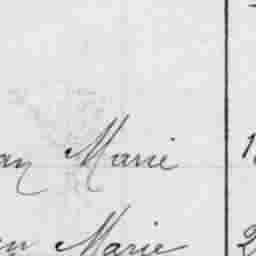 an Marie 1
en Marie 2